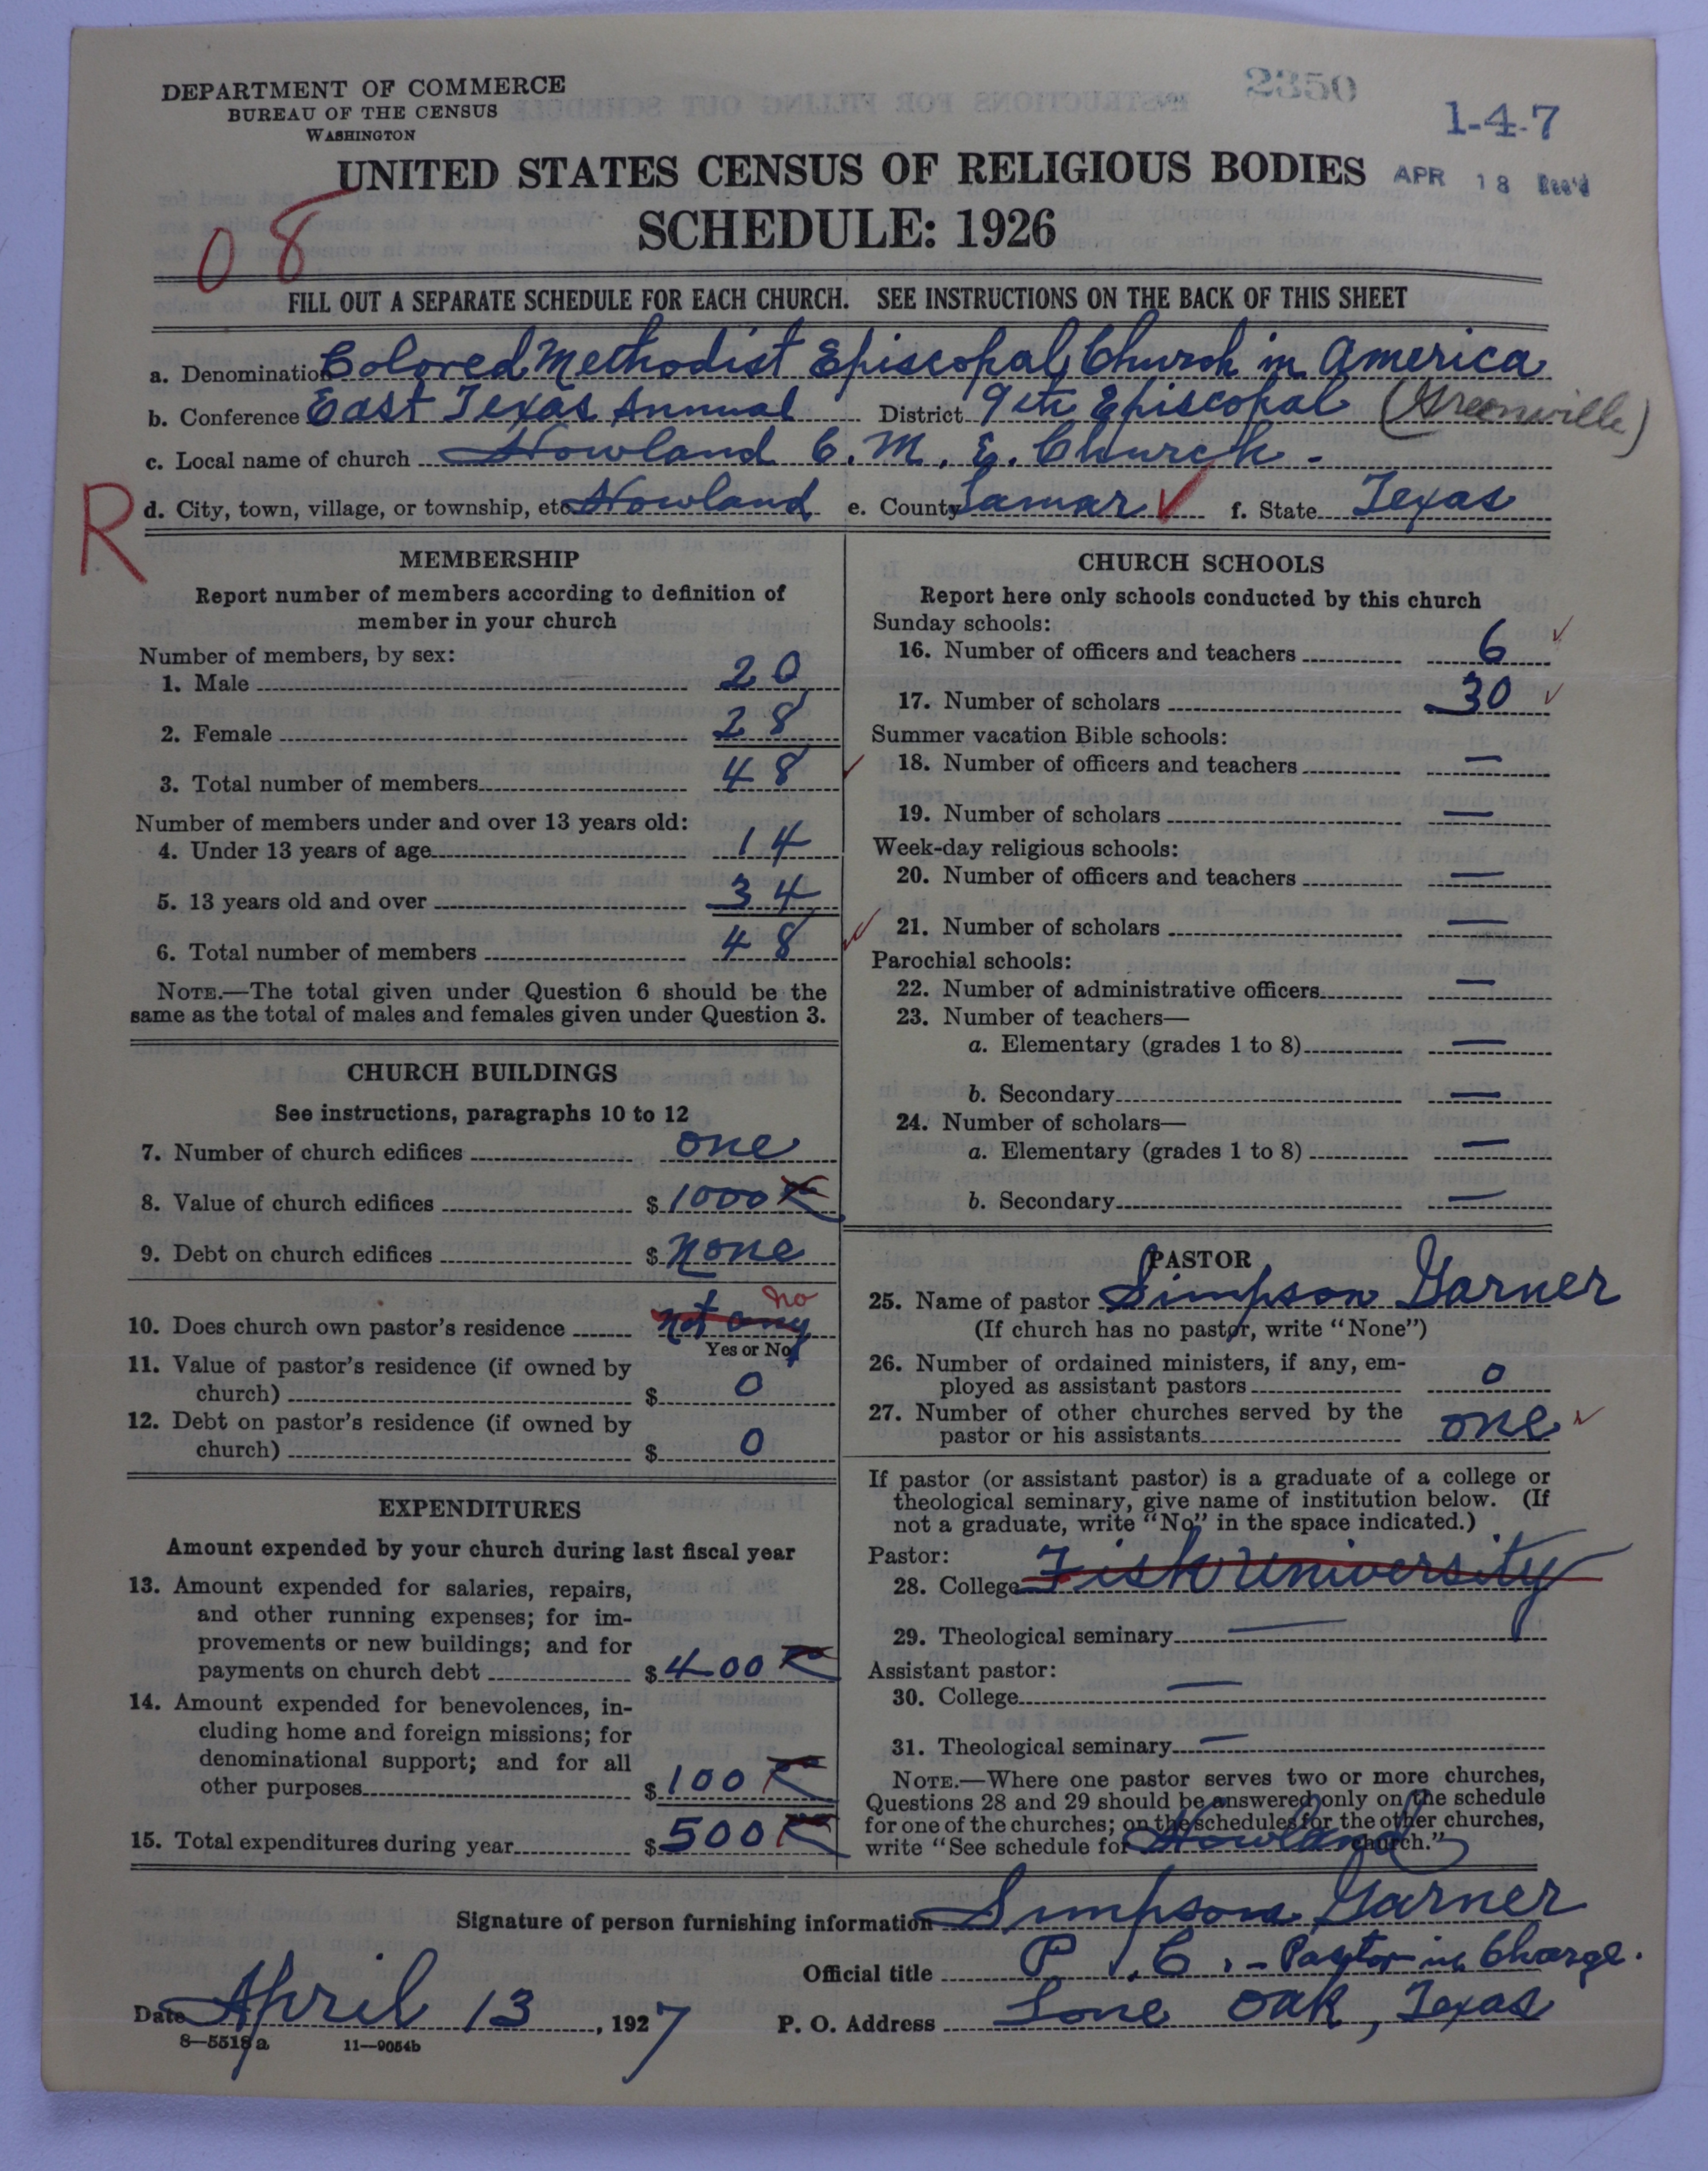 DEPARTMENT OF COMMERCE
BUREAU OF THE CENSUS
WASHINGTON
2350
1-4-7
UNITED STATES CENSUS OF RELIGIOUS BODIES
APR 18 Rec'd
SCHEDULE: 1926
08
FILL OUT A SEPARATE SCHEDULE FOR EACH CHURCH. SEE INSTRUCTIONS ON THE BACK OF THIS SHEET
a. Denomination Colored Methodist Episcopal Church in America
b. Conference East Texas Annual District 9th Episcopal (Greenville)
c. Local name of church Howland C. M. E. Church.
R
d. City, town, village, or township, etc. Howland e. County Lamar ✓ f. State Texas
MEMBERSHIP
Report number of members according to definition of
member in your church
Number of members, by sex:
1. Male 20
2. Female 28
3. Total number of members 48 ✓
Number of members under and over 13 years old:
4. Under 13 years of age 14
5. 13 years old and over 34
6. Total number of members 48 ✓
NOTE.—The total given under Question 6 should be the
same as the total of males and females given under Question 3.
CHURCH BUILDINGS
See instructions, paragraphs 10 to 12
7. Number of church edifices one
8. Value of church edifices $ 1000
9. Debt on church edifices $ none
10. Does church own pastor's residence not any no
Yes or No
11. Value of pastor's residence (if owned by
church) $ 0
12. Debt on pastor's residence (if owned by
church) $ 0
EXPENDITURES
Amount expended by your church during last fiscal year
13. Amount expended for salaries, repairs,
and other running expenses; for im-
provements or new buildings; and for
payments on church debt $ 400
14. Amount expended for benevolences, in-
cluding home and foreign missions; for
denominational support; and for all
other purposes $ 100
15. Total expenditures during year $ 500
CHURCH SCHOOLS
Report here only schools conducted by this church
Sunday schools:
16. Number of officers and teachers 6 ✓
17. Number of scholars 30 ✓
Summer vacation Bible schools:
18. Number of officers and teachers —
19. Number of scholars —
Week-day religious schools:
20. Number of officers and teachers —
21. Number of scholars —
Parochial schools:
22. Number of administrative officers —
23. Number of teachers—
a. Elementary (grades 1 to 8) —
b. Secondary —
24. Number of scholars—
a. Elementary (grades 1 to 8) —
b. Secondary —
PASTOR
25. Name of pastor Simpson Garner
(If church has no pastor, write "None")
26. Number of ordained ministers, if any, em-
ployed as assistant pastors 0
27. Number of other churches served by the
pastor or his assistants one ✓
If pastor (or assistant pastor) is a graduate of a college or
theological seminary, give name of institution below. (If
not a graduate, write "No" in the space indicated.)
Pastor:
28. College Fisk University
29. Theological seminary —
Assistant pastor:
30. College —
31. Theological seminary —
NOTE.—Where one pastor serves two or more churches,
Questions 28 and 29 should be answered only on the schedule
for one of the churches; on the schedules for the other churches,
write "See schedule for Howland church."
Signature of person furnishing information Simpson Garner
Official title P. C. - Pastor in Charge.
Date April 13, 1927 P. O. Address Lone Oak, Texas
8—5518a 11—9054b